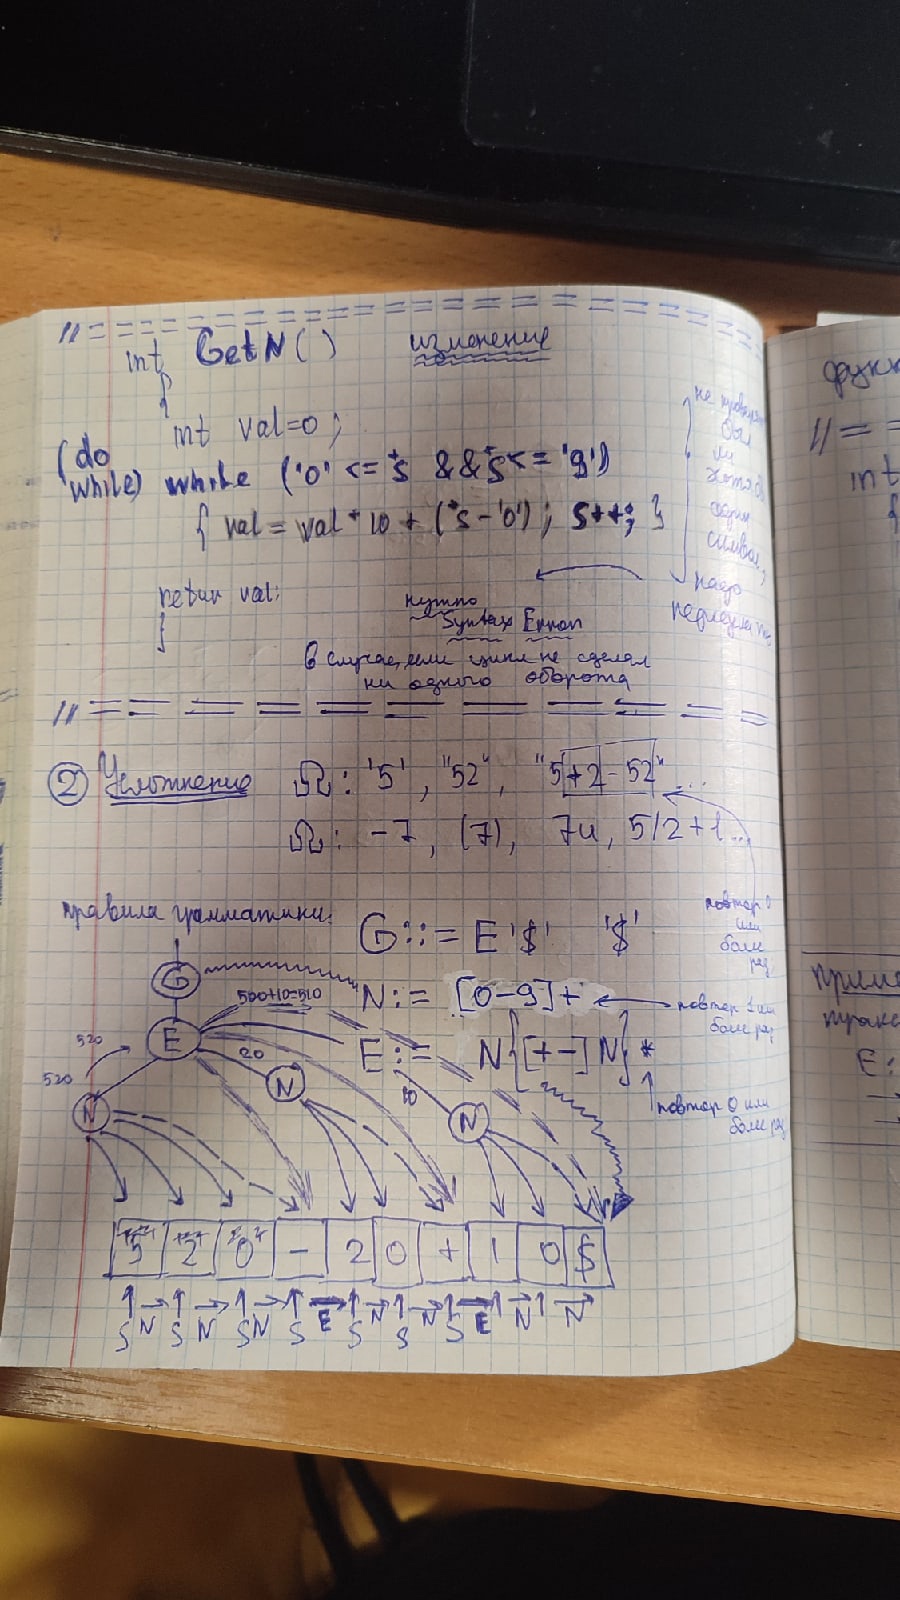 int GetN() изменение
{
int val=0;
(do while) while ('0' <= *s && *s <= '9')
{ val = val * 10 + (*s - '0'); s++; }
retur val;
}
не проверяем был ли хотя бы один символ,
надо
нужно
Syntax Error
в случае, если цикл не сделал
ни одного оборота
② Усложнение Ω: '5', "52", "5+2-52" ...
Ω: -7, (7), 7и, 5/2+1...
правила грамматики:
G::= E '$' '$'
повтор 0 или более раз
N:= [0-9]+
повтор 1 или более раз
E:= N{[+-]N}*
повтор 0 или более раз
G
500+10=510
E
520
520
20
N
N
10
N
5 2 0 - 2 0 + 1 0 $
S N S N S N S E S N S N S E N N
функ
int
{
приме
E: